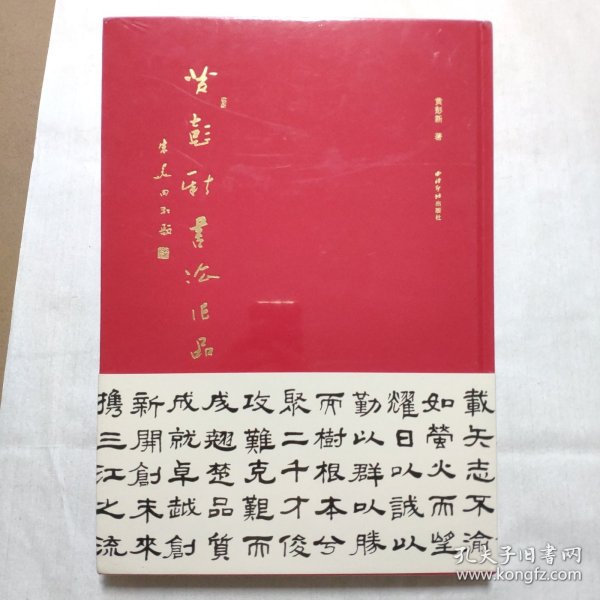 黄彭新 著
西泠印社出版社
黄彭新書法作品
朱关田题
載矢志不渝
如螢火而望
耀日以誠以
勤以群以勝
而樹根本兮
聚二千才俊
攻難克艱而
成翹楚品質
成就卓越創
新開創未來
携三江之流
孔夫子旧书网
www.kongfz.com